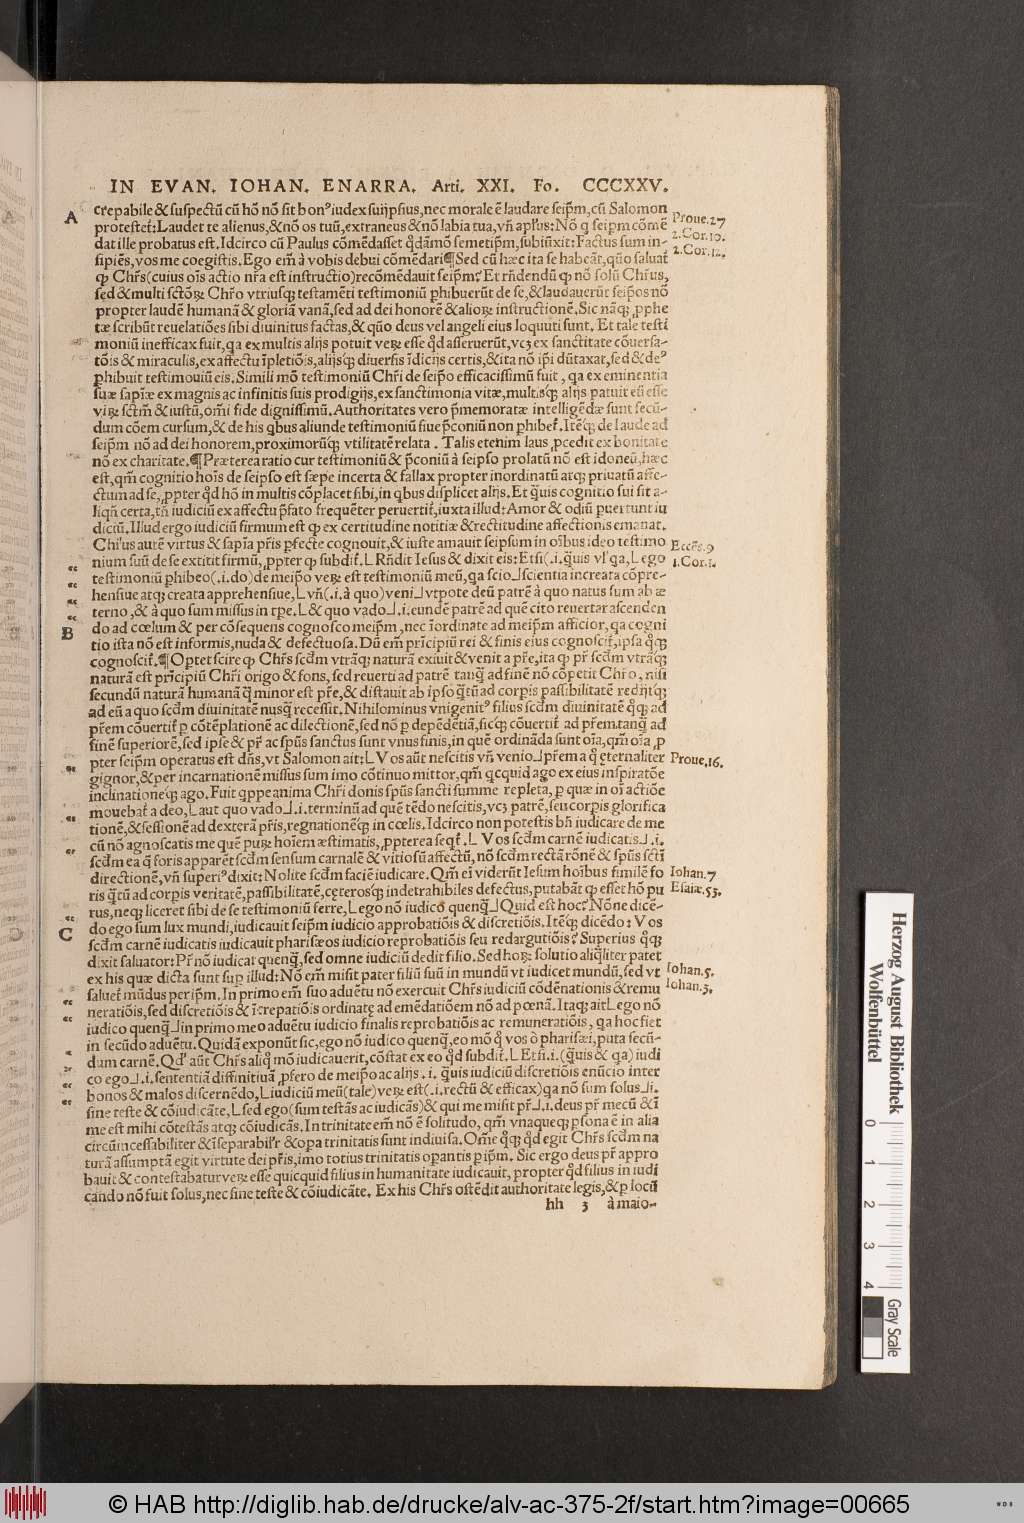 IN EVAN. IOHAN. ENARRA. Arti. XXI. Fo. CCCXXV.
A
crepabile & suspectũ cũ hõ nõ sit bonꝰ iudex suijpsius, nec morale ẽ laudare seip̃m, cũ Salomon
protestet̃: Laudet te alienus, & nõ os tuũ, extraneus & nõ labia tua, vñ apl̃us: Nõ q seip̃m cõmẽ
Proue.27
2.Cor.10.
dat ille probatus est. Idcirco cũ Paulus cõmẽdasset q̃dãmõ semetip̃m, subiũxit: Factus sum in-
2.Cor.12.
sipiẽs, vos me coegistis. Ego em̃ à vobis debui cõmẽdari ¶ Sed cũ hæc ita se habeãt, quõ saluat̃
ꝙ Chr̃s (cuius oĩs actio nr̃a est instructio) recõmẽdauit seip̃m? Et rñdendũ ꝙ nõ solũ Chr̃us,
sed & multi sctõꝝ Chr̃o vtriusqꝫ testamẽti testimoniũ ꝑhibuerũt de se, & laudauerũt seip̃os nõ
propter laudẽ humanã & gloriã vanã, sed ad dei honorẽ & alioꝝ instructionẽ. Sic nãqꝫ ꝓphe
tæ scribũt reuelatiões sibi diuinitus factas, & quõ deus vel angeli eius loquuti sunt. Et tale testi
moniũ inefficax fuit, qa ex multis alijs potuit veꝝ esse q̃d asseruerũt, vcꝫ ex sanctitate cõuersa-
tõis & miraculis, ex affectu ĩpletiõis, alijsqꝫ diuersis ĩdicijs certis, & ita nõ ip̃i dũtaxat, sed & deꝰ
ꝑhibuit testimouiũ eis. Simili mõ testimoniũ Chr̃i de seip̃o efficacissimũ fuit, qa ex eminentia
suæ sap̃iæ ex magnis ac infinitis suis prodigijs, ex sanctimonia vitæ, multisqꝫ alijs patuit eũ esse
viꝝ sctm̃ & iustũ, om̃i fide dignissimũ. Authoritates vero p̃memoratæ intelligẽdæ sunt secũ-
dum cõem cursum, & de his qbus aliunde testimoniũ siue p̃coniũ non ꝑhibet̃. Itẽqꝫ de laude ad
seip̃m nõ ad dei honorem, proximorũqꝫ vtilitatẽ relata. Talis etenim laus ꝓcedit ex bonitate
nõ ex charitate. ¶ Præterea ratio cur testimoniũ & p̃coniũ à seipso prolatũ nõ est idoneũ, hæc
est, qm̃ cognitio hoĩs de seipso est sæpe incerta & fallax propter inordinatũ atqꝫ priuatũ affe-
ctum ad se, ꝓpter q̃d hõ in multis cõplacet sibi, in qbus displicet alijs. Et q̃uis cognitio sui sit a-
liqñ certa, tñ iudiciũ ex affectu p̃fato frequẽter peruertit̃, iuxta illud: Amor & odiũ puertunt iu
diciũ. Illud ergo iudiciũ firmum est ꝙ ex certitudine notitiæ & rectitudine affectionis emanat.
Chr̃us autẽ virtus & sap̃ia pr̃is ꝑfecte cognouit, & iuste amauit seipsum in oĩbus ideo testimo
Eccẽs.9
nium suũ de se extitit firmũ, ꝓpter ꝙ subdit̃. L Rñdit Iesus & dixit eis: Etsi (.i. q̃uis vl' qa, L ego
1.Cor.1.
testimoniũ ꝑhibeo (.i. do) de meip̃o veꝝ est testimoniũ meũ, qa scio ⅃ scientia increata cõpre-
hensiue atqꝫ creata apprehensiue, L vñ (.i. à quo) veni ⅃ vtpote deũ patrẽ à quo natus sum ab æ
terno, & à quo sum missus in tpe. L & quo vado ⅃ .i. eundẽ patrẽ ad quẽ cito reuertar ascenden
B
do ad cœlum & per cõsequens cognosco meip̃m, nec ĩordinate ad meip̃m afficior, qa cogni
tio ista nõ est informis, nuda & defectuosa. Dũ em̃ prĩcipiũ rei & finis eius cognoscit̃, ipsa q̃qꝫ
cognoscit̃. ¶ Oportet scire ꝙ Chr̃s scdm̃ vtrãqꝫ naturã exiuit & venit a pr̃e, ita ꝙ pr̃ scdm̃ vtrãqꝫ
naturã est prĩcipiũ Chr̃i origo & fons, sed reuerti ad patrẽ tanq̃ ad finẽ nõ cõpetit Chr̃o, nisi
secundũ naturã humanã q̃ minor est pr̃e, & distauit ab ipso q̃tũ ad corpis passibilitatẽ redijtqꝫ
ad eũ a quo scdm̃ diuinitatẽ nusq̃ recessit. Nihilominus vnigenitꝰ filius scdm̃ diuinitatẽ q̃qꝫ ad
pr̃em cõuertit̃ ꝑ cõtẽplationẽ ac dilectionẽ, sed nõ ꝑ depẽdẽtiã, sicqꝫ cõuertit̃ ad pr̃em tanq̃ ad
finẽ superiorẽ, sed ipse & pr̃ ac sp̃us sanctus sunt vnus finis, in quẽ ordinãda sunt oĩa, qm̃ oĩa ꝓ
pter seip̃m operatus est dñs, vt Salomon ait: L Vos aũt nescitis vñ venio ⅃ pr̃em a q̃ çternaliter
Proue.16.
gignor, & per incarnationẽ missus sum imo cõtinuo mittor, qm̃ qcquid ago ex eius inspiratõe
inclinationeqꝫ ago. Fuit qppe anima Chr̃i donis sp̃us sancti summe repleta, ꝑ quæ in oĩ actiõe
mouebat̃ a deo, L aut quo vado ⅃ .i. terminũ ad quẽ tẽdo nescitis, vcꝫ patrẽ, seu corpis glorifica
tionẽ, & sessionẽ ad dexterã pr̃is, regnationẽqꝫ in cœlis. Idcirco non potestis bñ iudicare de me
cũ nõ agnoscatis me quẽ puꝝ hoĩem æstimatis, ꝓpterea seqt̃. L Vos scdm̃ carnẽ iudicatis ⅃ .i.
scdm̃ ea q̃ foris apparẽt scdm̃ sensum carnalẽ & vitiosũ affectũ, nõ scdm̃ rectã rõnẽ & sp̃us sctĩ
directionẽ, vñ superiꝰ dixit: Nolite scdm̃ faciẽ iudicare. Qm̃ eĩ viderũt Iesum hoĩbus similẽ fo
Iohan.7
ris q̃tũ ad corpis veritatẽ, passibilitatẽ, çterosqꝫ indetrahibiles defectus, putabãt ꝙ esset hõ pu
Esaiæ.53.
rus, neqꝫ liceret sibi de se testimoniũ ferre, L ego nõ iudico quenq̃ ⅃ Quid est hoc? Nõne dicẽ-
C
do ego sum lux mundi, iudicauit seip̃m iudicio approbatiõis & discretiõis. Itẽqꝫ dicẽdo: Vos
scdm̃ carnẽ iudicatis iudicauit pharisæos iudicio reprobatiõis seu redargutiõis? Superius q̃qꝫ
dixit saluator: Pr̃ nõ iudicat quenq̃, sed omne iudiciũ dedit filio. Sed hoꝝ solutio aliq̃liter patet
ex his quæ dicta sunt suꝑ illud: Nõ em̃ misit pater filiũ suũ in mundũ vt iudicet mundũ, sed vt
Iohan.5.
saluet̃ mũdus per ip̃m. In primo em̃ suo aduẽtu nõ exercuit Chr̃s iudiciũ cõdẽnationis & remu
Iohan.3.
neratiõis, sed discretiõis & ĩcrepatiõis ordinatç ad emẽdatiõem nõ ad pœnã. Itaqꝫ ait L ego nõ
iudico quenq̃ ⅃ in primo meo aduẽtu iudicio finalis reprobatiõis ac remuneratiõis, qa hoc fiet
in secũdo aduẽtu. Quidã exponũt sic, ego nõ iudico quenq̃, eo mõ q̃ vos ò pharisæi, puta secũ-
dum carnẽ. Qd' aũt Chr̃s aliq̃ mõ iudicauerit, cõstat ex eo q̃d subdit̃. L Etsi .i. (q̃uis & qa) iudi
co ego ⅃ .i. sententiã diffinitiuã ꝓfero de meip̃o ac alijs .i. q̃uis iudiciũ discretiõis enũcio inter
bonos & malos discernẽdo, L iudiciũ meũ (tale) veꝝ est (.i. rectũ & efficax) qa nõ sum solus ⅃ .i.
sine teste & cõiudicãte, L sed ego (sum testãs ac iudicãs) & qui me misit pr̃ ⅃ .i. deus pr̃ mecũ & ĩ
me est mihi cõtestãs atqꝫ cõiudicãs. In trinitate em̃ nõ ẽ solitudo, qm̃ vnaqueqꝫ ꝑsona ẽ in alia
circũincessabiliter & ĩseparabilr̃ & opa trinitatis sunt indiuisa. Om̃e q̃qꝫ q̃d egit Chr̃s scdm̃ na
turã assumptã egit virtute dei pr̃is, imo totius trinitatis opantis ꝑ ip̃m. Sic ergo deus pr̃ appro
bauit & contestabatur veꝝ esse quicquid filius in humanitate iudicauit, propter q̃d filius in iudi
cando nõ fuit solus, nec sine teste & cõiudicãte. Ex his Chr̃s ostẽdit authoritate legis, & ꝑ locũ
hh 3 à maio-
Herzog August Bibliothek
Wolfenbüttel
0 1 2 3 4
Gray Scale
© HAB http://diglib.hab.de/drucke/alv-ac-375-2f/start.htm?image=00665